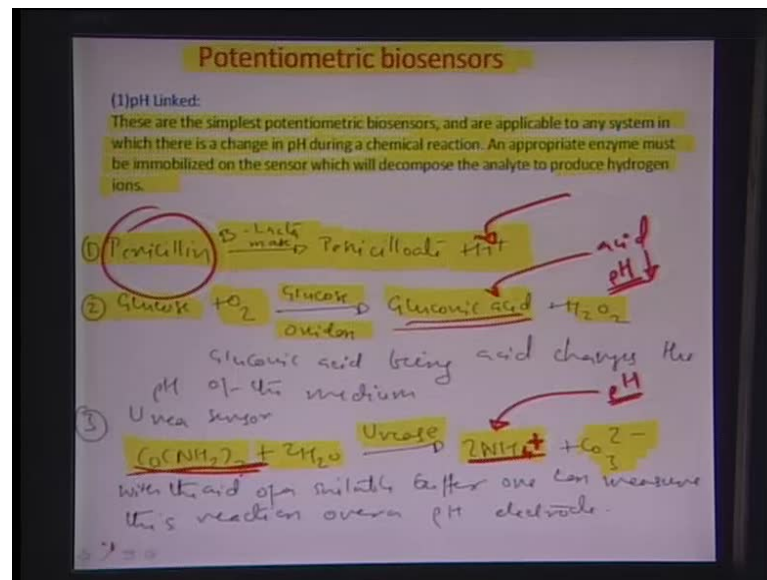 Potentiometric biosensors
(1)pH Linked:
These are the simplest potentiometric biosensors, and are applicable to any system in
which there is a change in pH during a chemical reaction. An appropriate enzyme must
be immobilized on the sensor which will decompose the analyte to produce hydrogen
ions.
① Penicillin B-Lactamase → Penicilloate + H+
acid
pH ↓
② Glucose + O2 Glucose → Gluconic acid + H2O2
Gluconic acid being acid changes the
pH of the medium
pH
③ Urea sensor
CO(NH2)2 + 2H2O Urease → 2NH4+ + CO3 2-
with the aid of a suitable buffer one can measure
this reaction over a pH electrode.